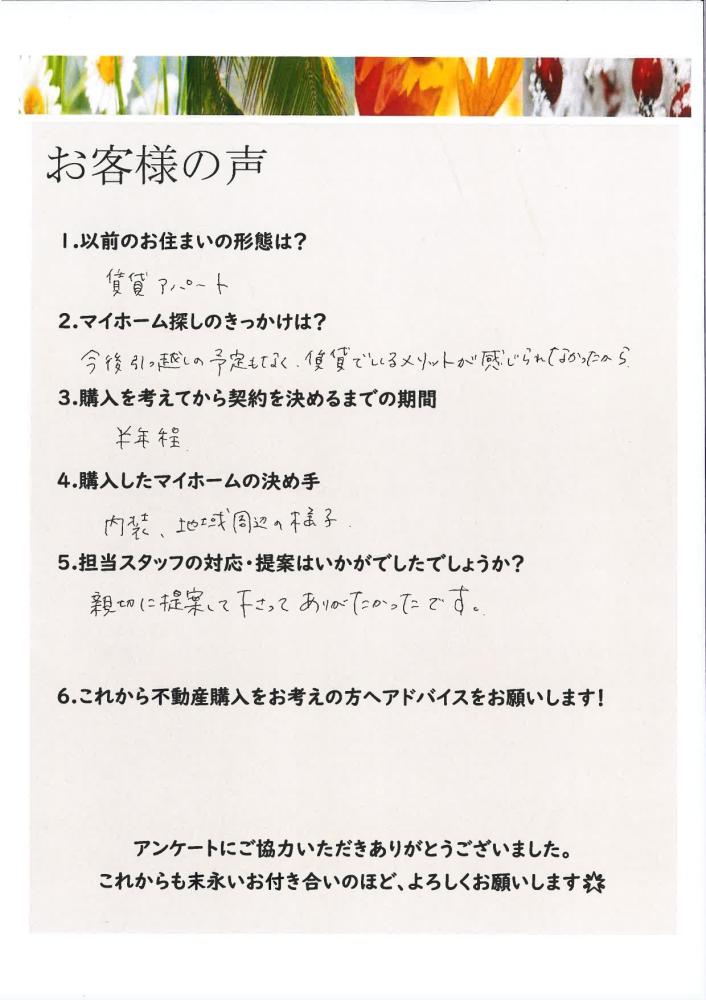 お客様の声
1.以前のお住まいの形態は?
賃貸アパート
2.マイホーム探しのきっかけは?
今後引っ越しの予定もなく、賃貸でいるメリットが感じられなかったから.
3.購入を考えてから契約を決めるまでの期間
半年程
4.購入したマイホームの決め手
内装、地域周辺の様子.
5.担当スタッフの対応・提案はいかがでしたでしょうか?
親切に提案して下さってありがたかったです。
6.これから不動産購入をお考えの方へアドバイスをお願いします!
アンケートにご協力いただきありがとうございました。
これからも末永いお付き合いのほど、よろしくお願いします